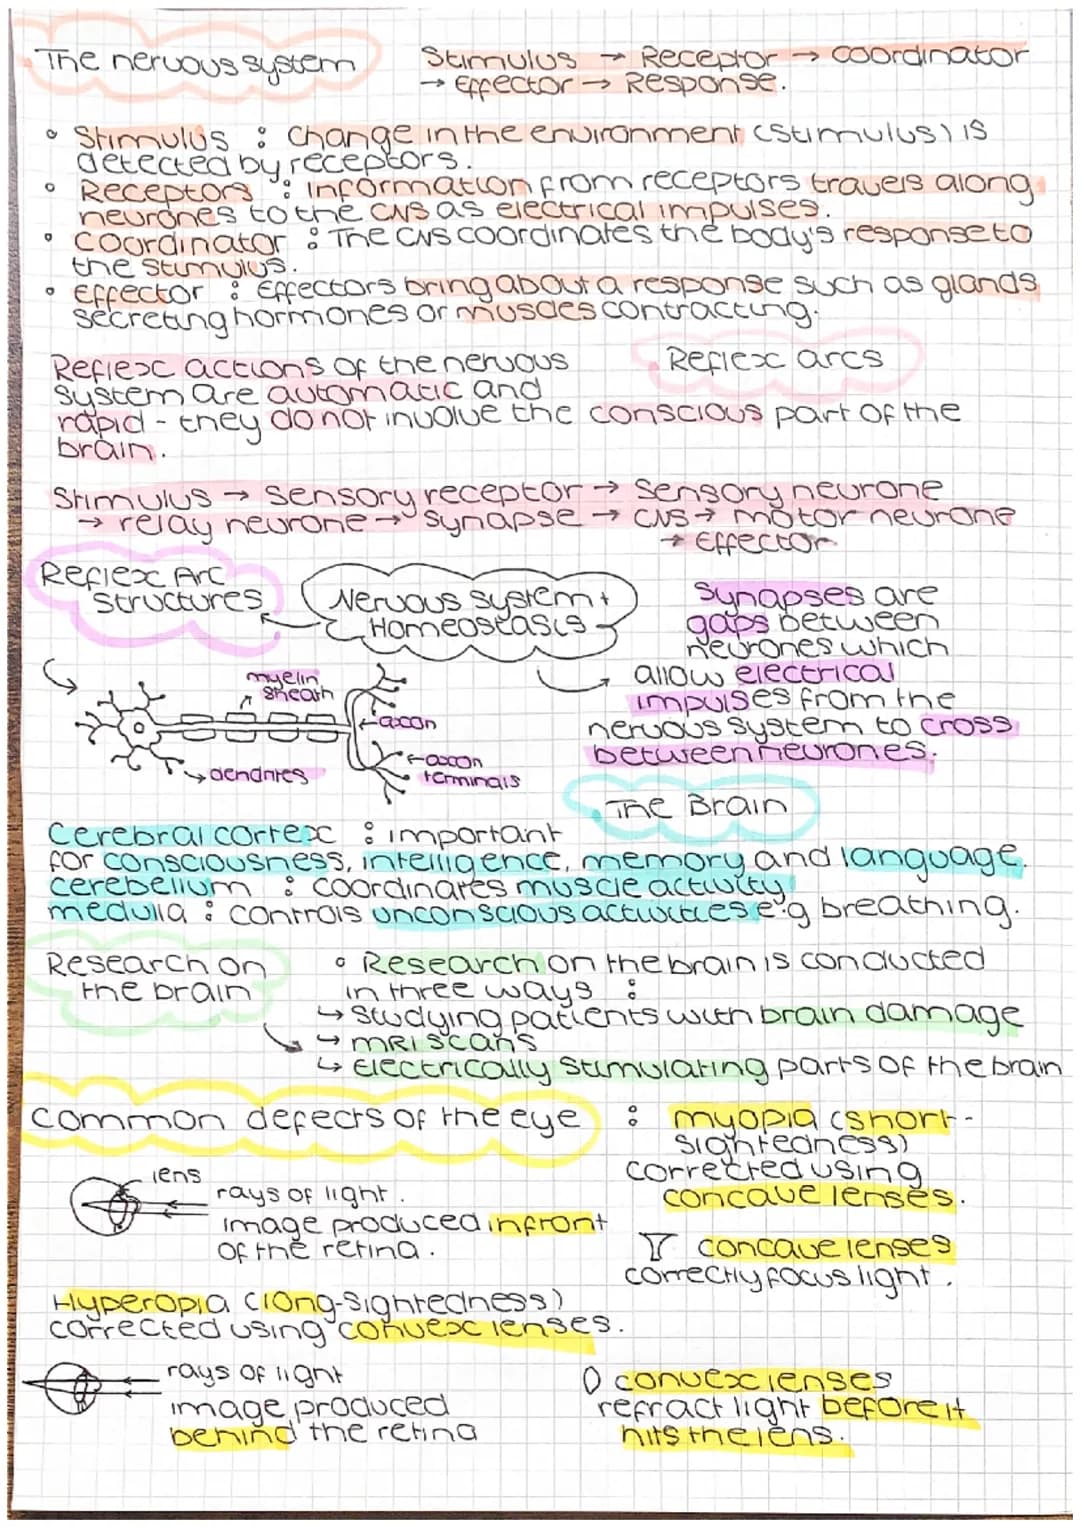 The nervous system
Stimulus → Receptor → coordinator
→ Effector → Response.
◦ Stimulus : change in the environment (stimulus) is
detected by receptors.
◦ Receptors : information from receptors travels along
neurones to the CNS as electrical impulses.
◦ coordinator : The CNS coordinates the body's response to
the stimulus.
◦ Effector : Effectors bring about a response such as glands
secreting hormones or muscles contracting.
Reflex arcs
Reflex actions of the nervous
system are automatic and
rapid - they do not involve the conscious part of the
brain.
Stimulus → sensory receptor → sensory neurone
→ relay neurone → synapse → CNS → motor neurone
→ Effector
Reflex Arc
structures
Nervous system +
Homeostasis
Synapses are
gaps between
neurones which
allow electrical
impulses from the
nervous system to cross
between neurones.
myelin
sheath
←axon
→dendrites
←axon
terminals
The Brain
Cerebral cortex : important
for consciousness, intelligence, memory and language.
cerebellum : coordinates muscle activity
medulla : controls unconscious activities e.g breathing.
Research on
the brain
◦ Research on the brain is conducted
in three ways :
↳ studying patients with brain damage
↳ MRI scans
↳ Electrically stimulating parts of the brain
common defects of the eye : myopia (short-
sightedness)
corrected using
concave lenses.
lens
rays of light.
image produced infront
of the retina.
concave lenses
correctly focus light.
Hyperopia (long-sightedness)
corrected using convex lenses.
rays of light
image produced
behind the retina
convex lenses
refract light before it
hits the lens.